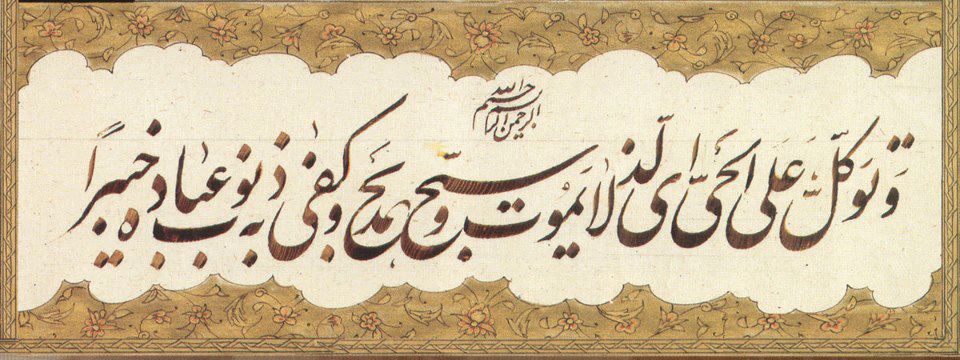 بسم الله الرحمن الرحیم
وَتَوَكَّلْ عَلَى الْحَيِّ الَّذِي لَا يَمُوتُ وَسَبِّحْ بِحَمْدِهِ وَكَفَىٰ بِهِ بِذُنُوبِ عِبَادِهِ خَبِيرًا